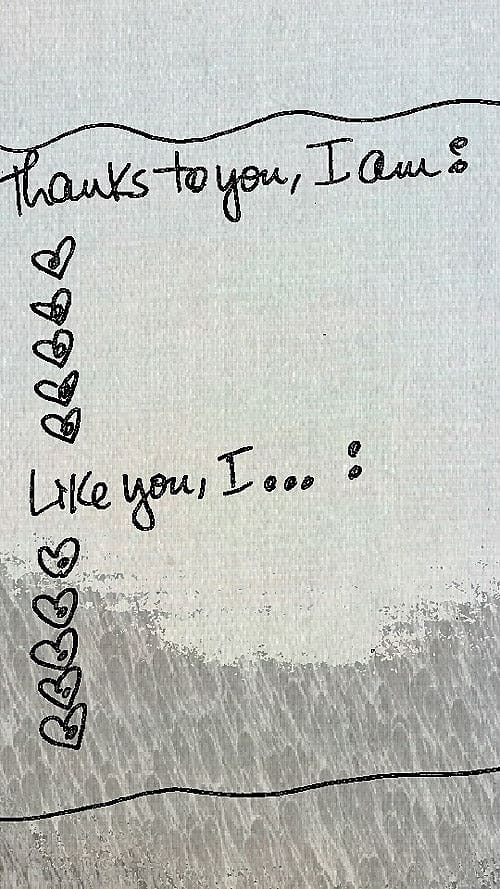 Thanks to you, I am:
Like you, I... :